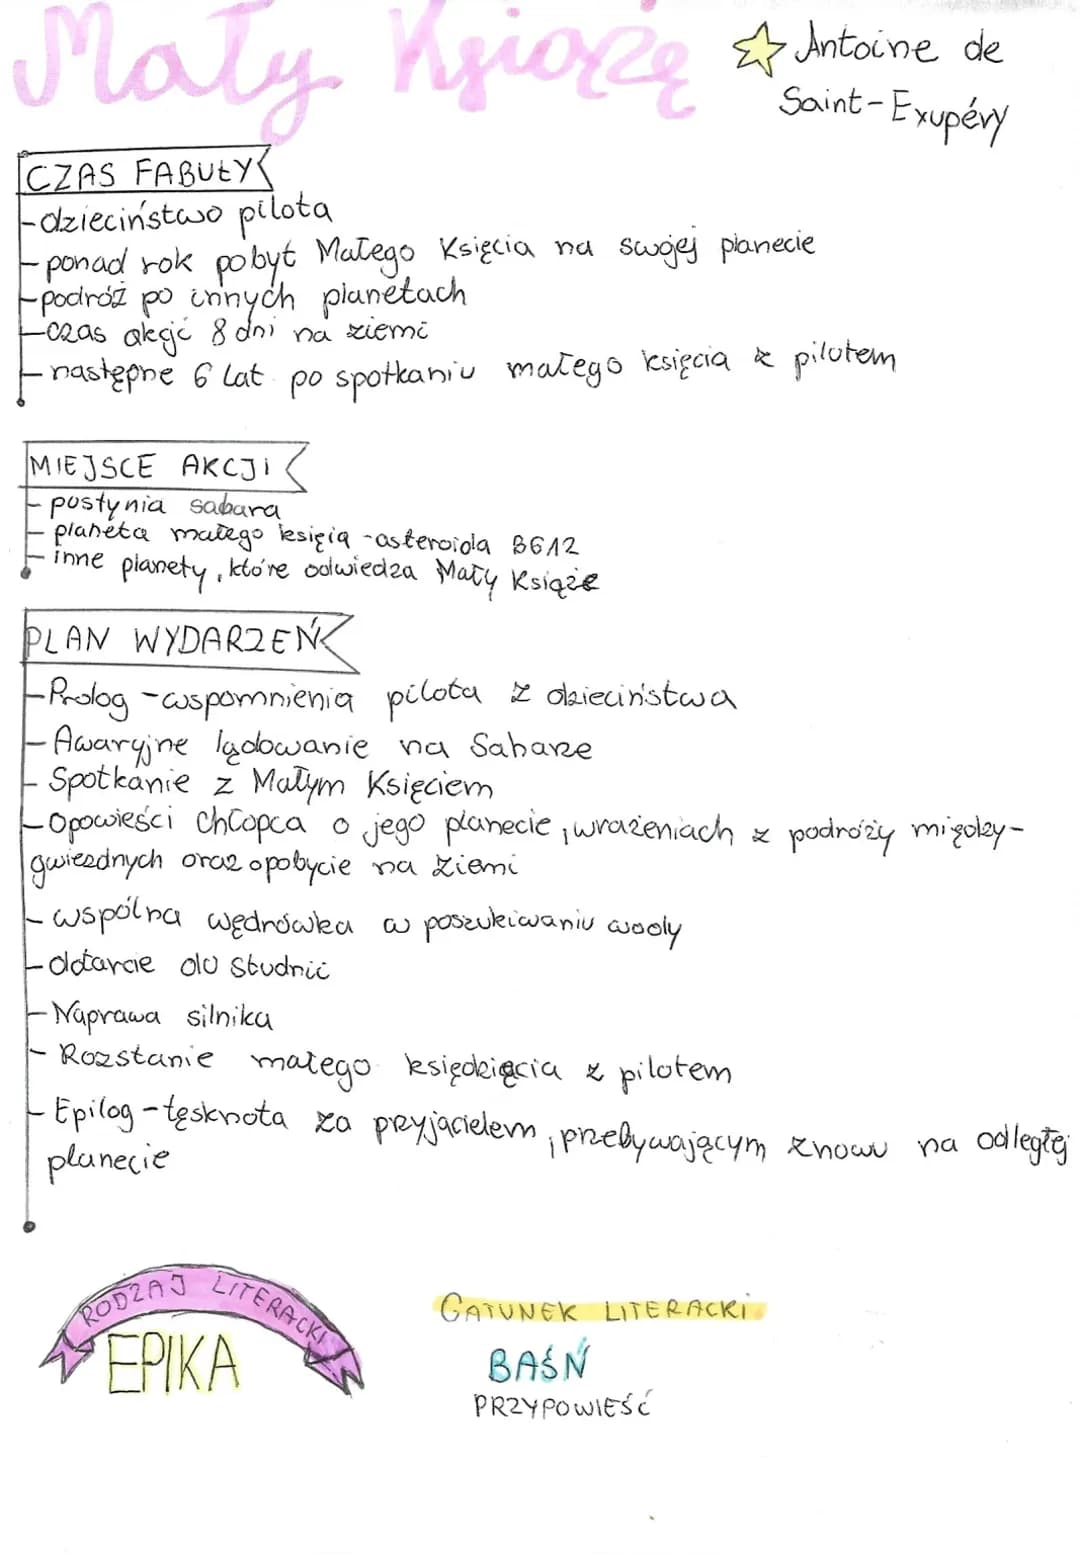 Mały Książę
Antoine de
Saint-Exupéry
CZAS FABUŁY
-dzieciństwo pilota
-ponad rok pobyt Małego Księcia na swojej planecie
-podróż po innych planetach
-czas akcji 8 dni na ziemi
-następne 6 lat po spotkaniu małego księcia z pilotem
MIEJSCE AKCJI
- pustynia sahara
- planeta małego księcia -asteroida B612
- inne planety, które odwiedza Mały Książe
PLAN WYDARZEŃ
-Prolog -wspomnienia pilota z dzieciństwa
-Awaryjne lądowanie na Saharze
- Spotkanie z Małym Księciem
-Opowieści chłopca o jego planecie, wrażeniach z podróży między-
gwiezdnych oraz o pobycie na Ziemi
- wspólna wędrówka w poszukiwaniu wody
-dotarcie do studni
-Naprawa silnika
- Rozstanie małego z pilotem
- Epilog -tęsknota za przyjacielem, przebywającym znowu na odległej
planecie
RODZAJ LITERACKI
EPIKA
GATUNEK LITERACKI
BAŚŃ
PRZYPOWIEŚĆ